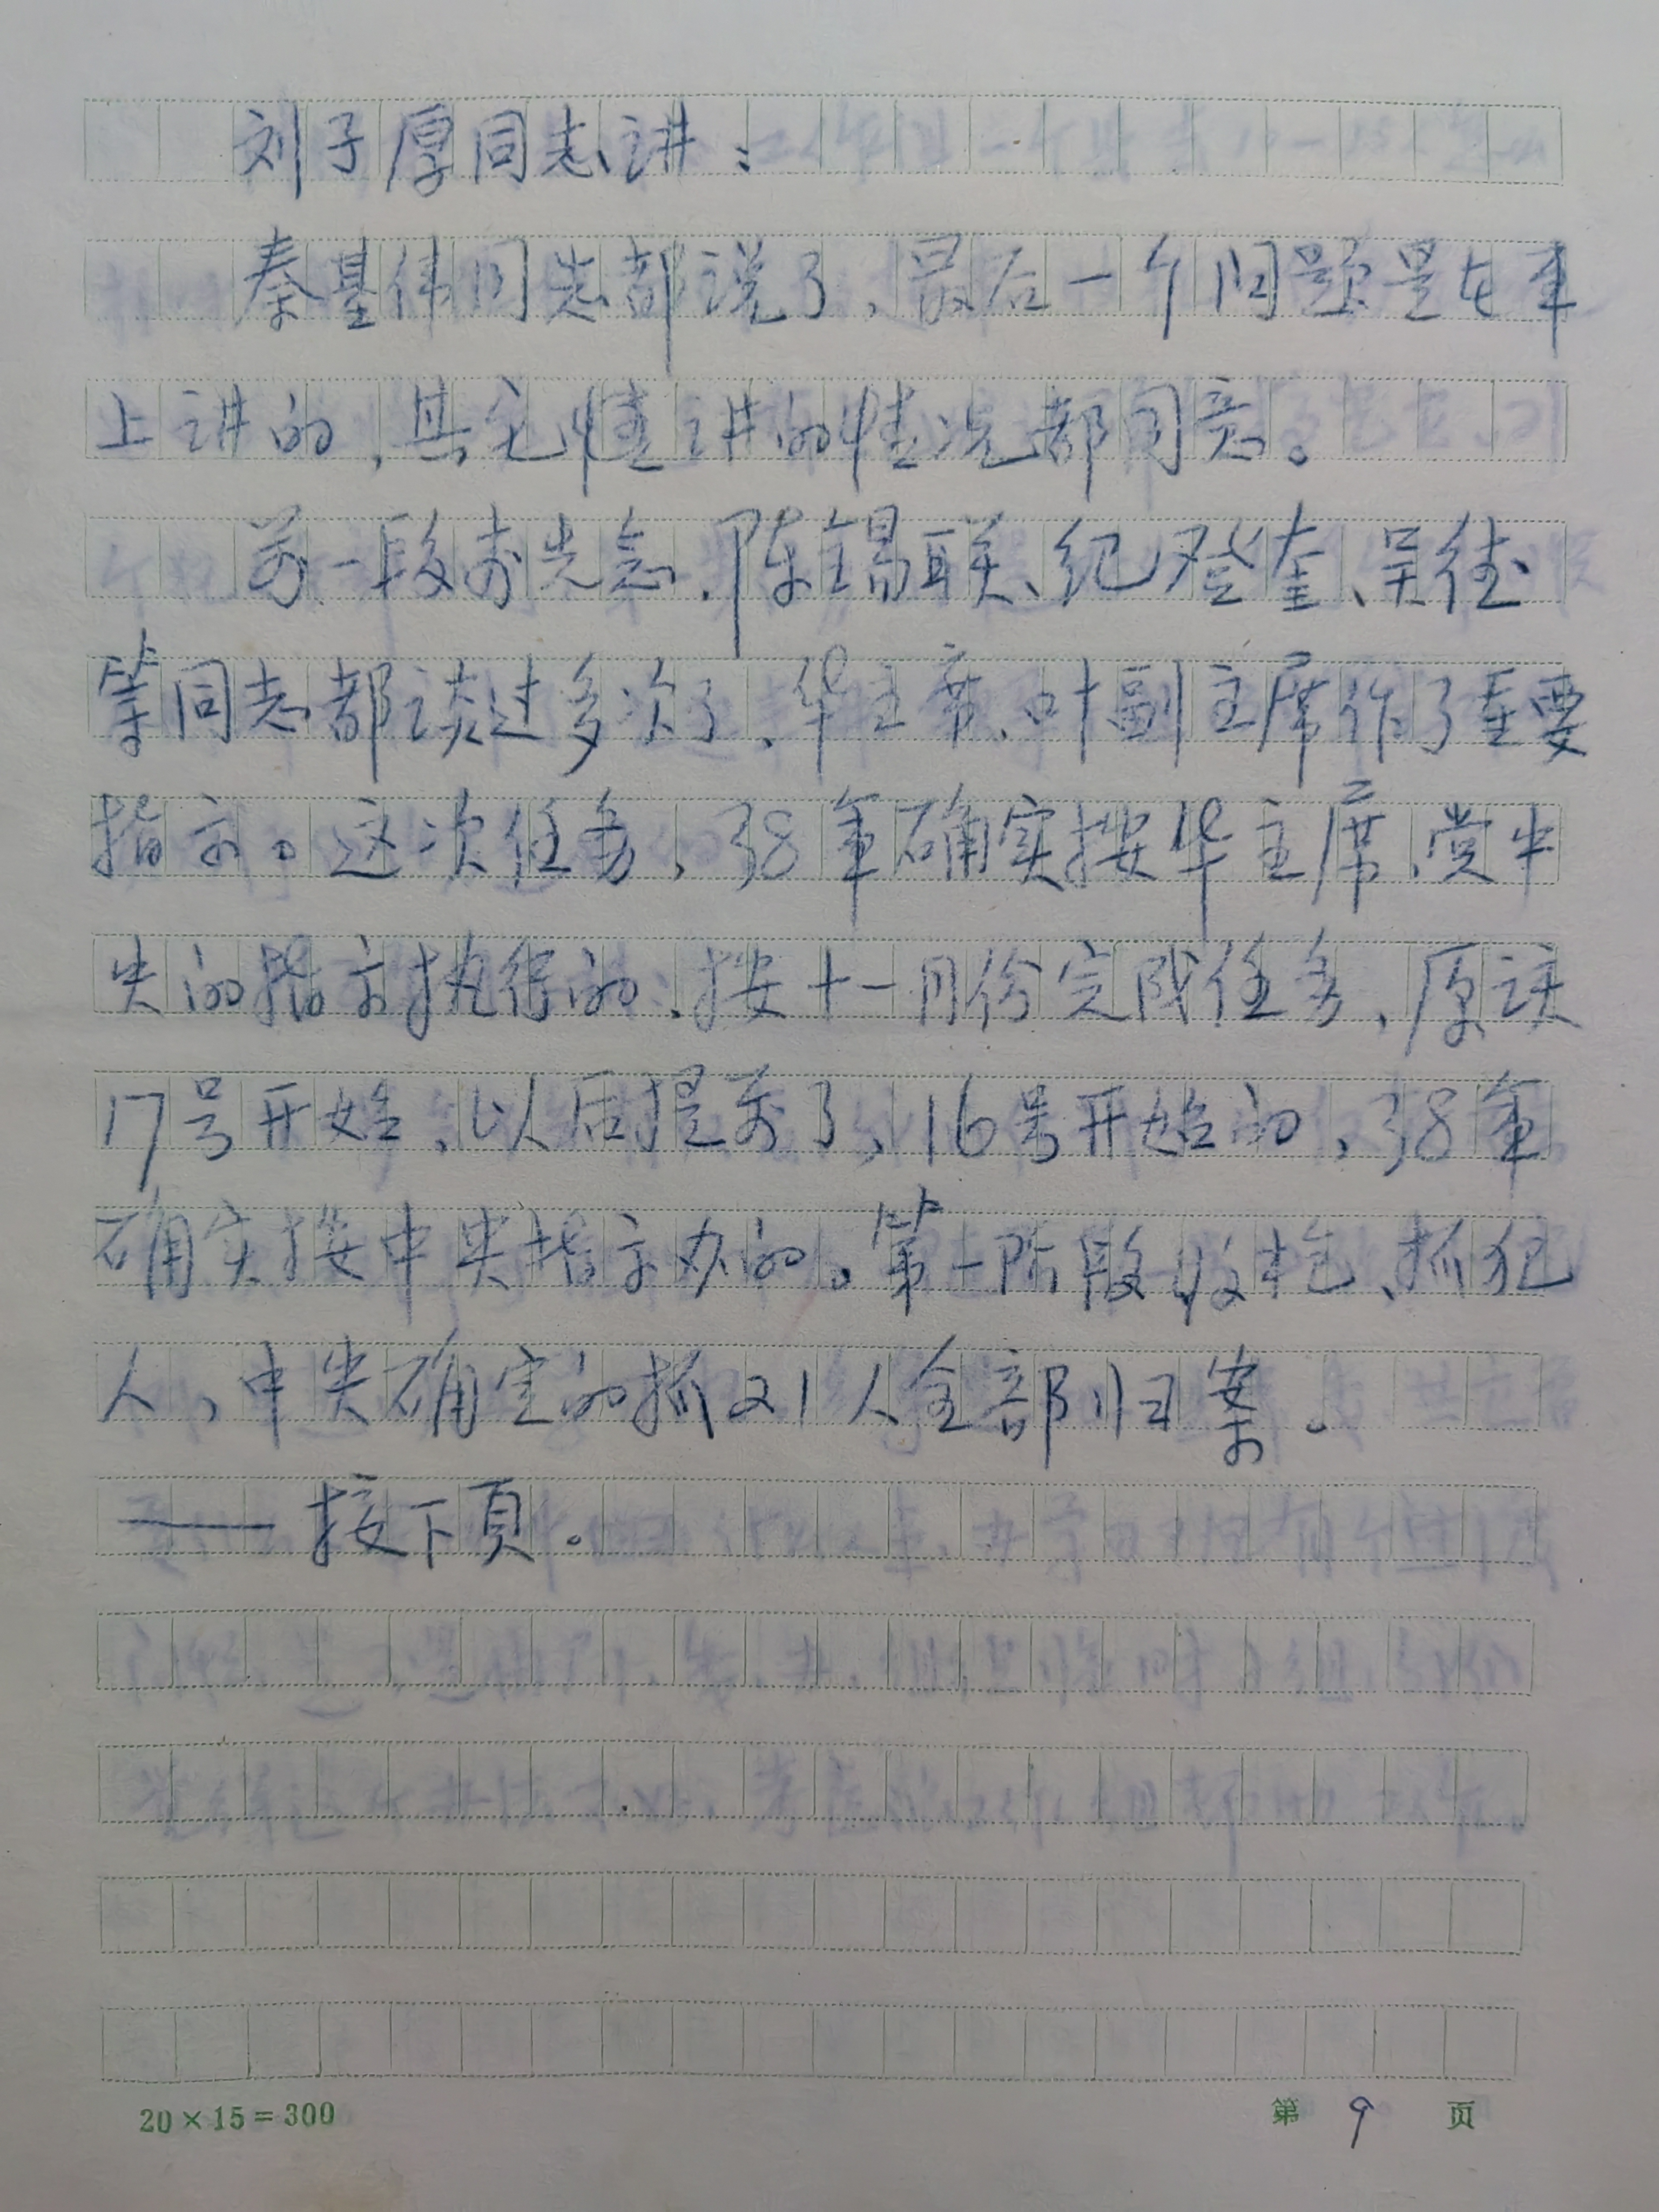 刘子厚同志讲:
秦基伟同志都说了,最后一个问题是在车
上讲的,其它情讲的情况都同意。
前一段李先念、陈锡联、纪登奎、吴德
等同志都谈过多次了,华主席、叶副主席作了重要
指示。这次任务,38军确实按华主席、党中
央的指示执行的,按十一月份完成任务,原议
17号开始,以后提前了,16号开始的,38军
确实按中央指示办的。第一阶段收枪、抓犯
人,中央确定的抓21人全部归案。
——接下页。
20×15=300 第 9 页